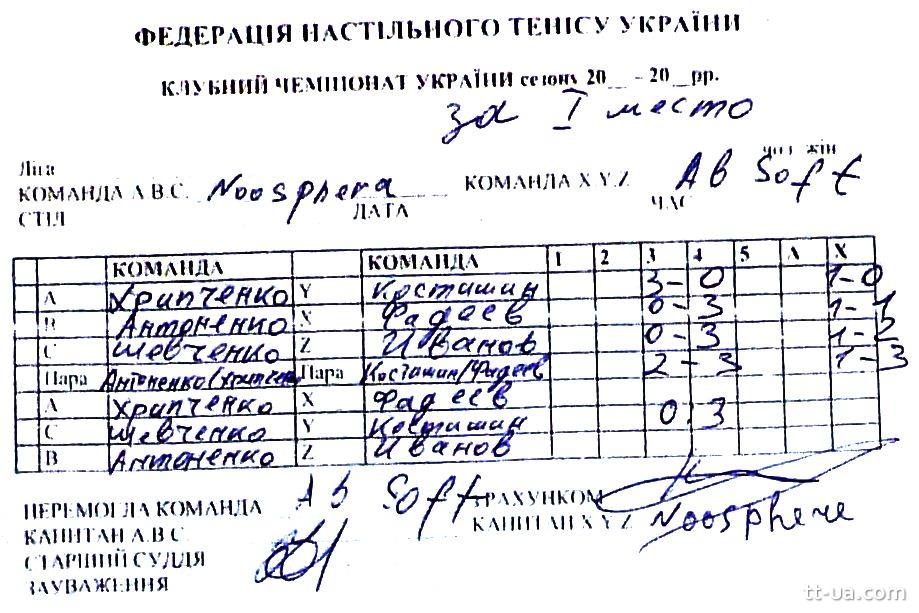 ФЕДЕРАЦІЯ НАСТІЛЬНОГО ТЕНІСУ УКРАЇНИ
КЛУБНИЙ ЧЕМПІОНАТ УКРАЇНИ сезону 20__ - 20__рр.
за I место
Ліга чол жін
КОМАНДА А.В.С. Noosphera КОМАНДА X.Y.Z Ab Soft
СТІЛ ДАТА ЧАС
КОМАНДА КОМАНДА 1 2 3 4 5 А Х
А Хрипченко Y Костишин 3-0 1-0
В Антоненко X Фадеев 0-3 1-1
С Шевченко Z Иванов 0-3 1-2
Пара Антоненко/Хрипченко Пара Костишин/Фадеев 2-3 1-3
А Хрипченко X Фадеев 0.3
С Шевченко Y Костишин
В Антоненко Z Иванов
ПЕРЕМОГЛА КОМАНДА Ab Soft З РАХУНКОМ
КАПІТАН А.В.С. КАПІТАН X.Y.Z Noosphere
СТАРШИЙ СУДДЯ
ЗАУВАЖЕННЯ
tt-ua.com